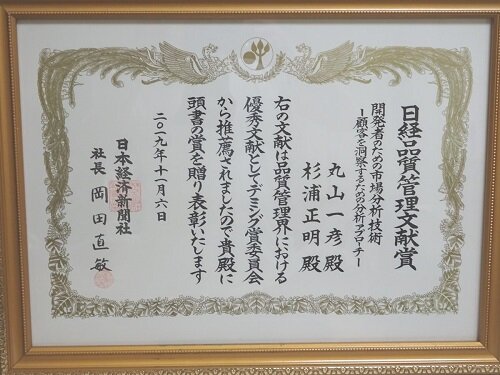 日経品質管理文献賞
開発者のための市場分析技術
ー顧客を洞察するための分析アプローチー
丸山一彦 殿
杉浦正明 殿
右の文献は品質管理界における
優秀文献としてデミング賞委員会
から推薦されましたので貴殿に
頭書の賞を贈り表彰いたします
二〇一九年十一月六日
日本経済新聞社
社長 岡田直敏